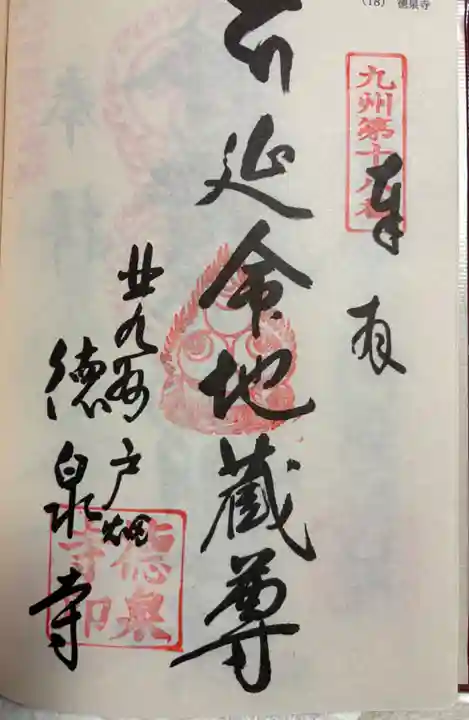 (18) 徳泉寺
九州第十八番
奉
延命地蔵尊
北九州
戸畑
徳泉寺
徳泉寺印